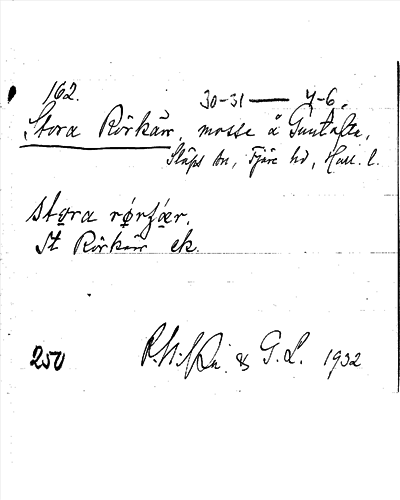 162.
30-31 — Y-6.
Stora Rörkärr, mosse å Guntofta,
Släps sn, Fjäre hd, Hall. l.
stora rörfær.
St Rörkärr ek.
250
& G. L. 1932